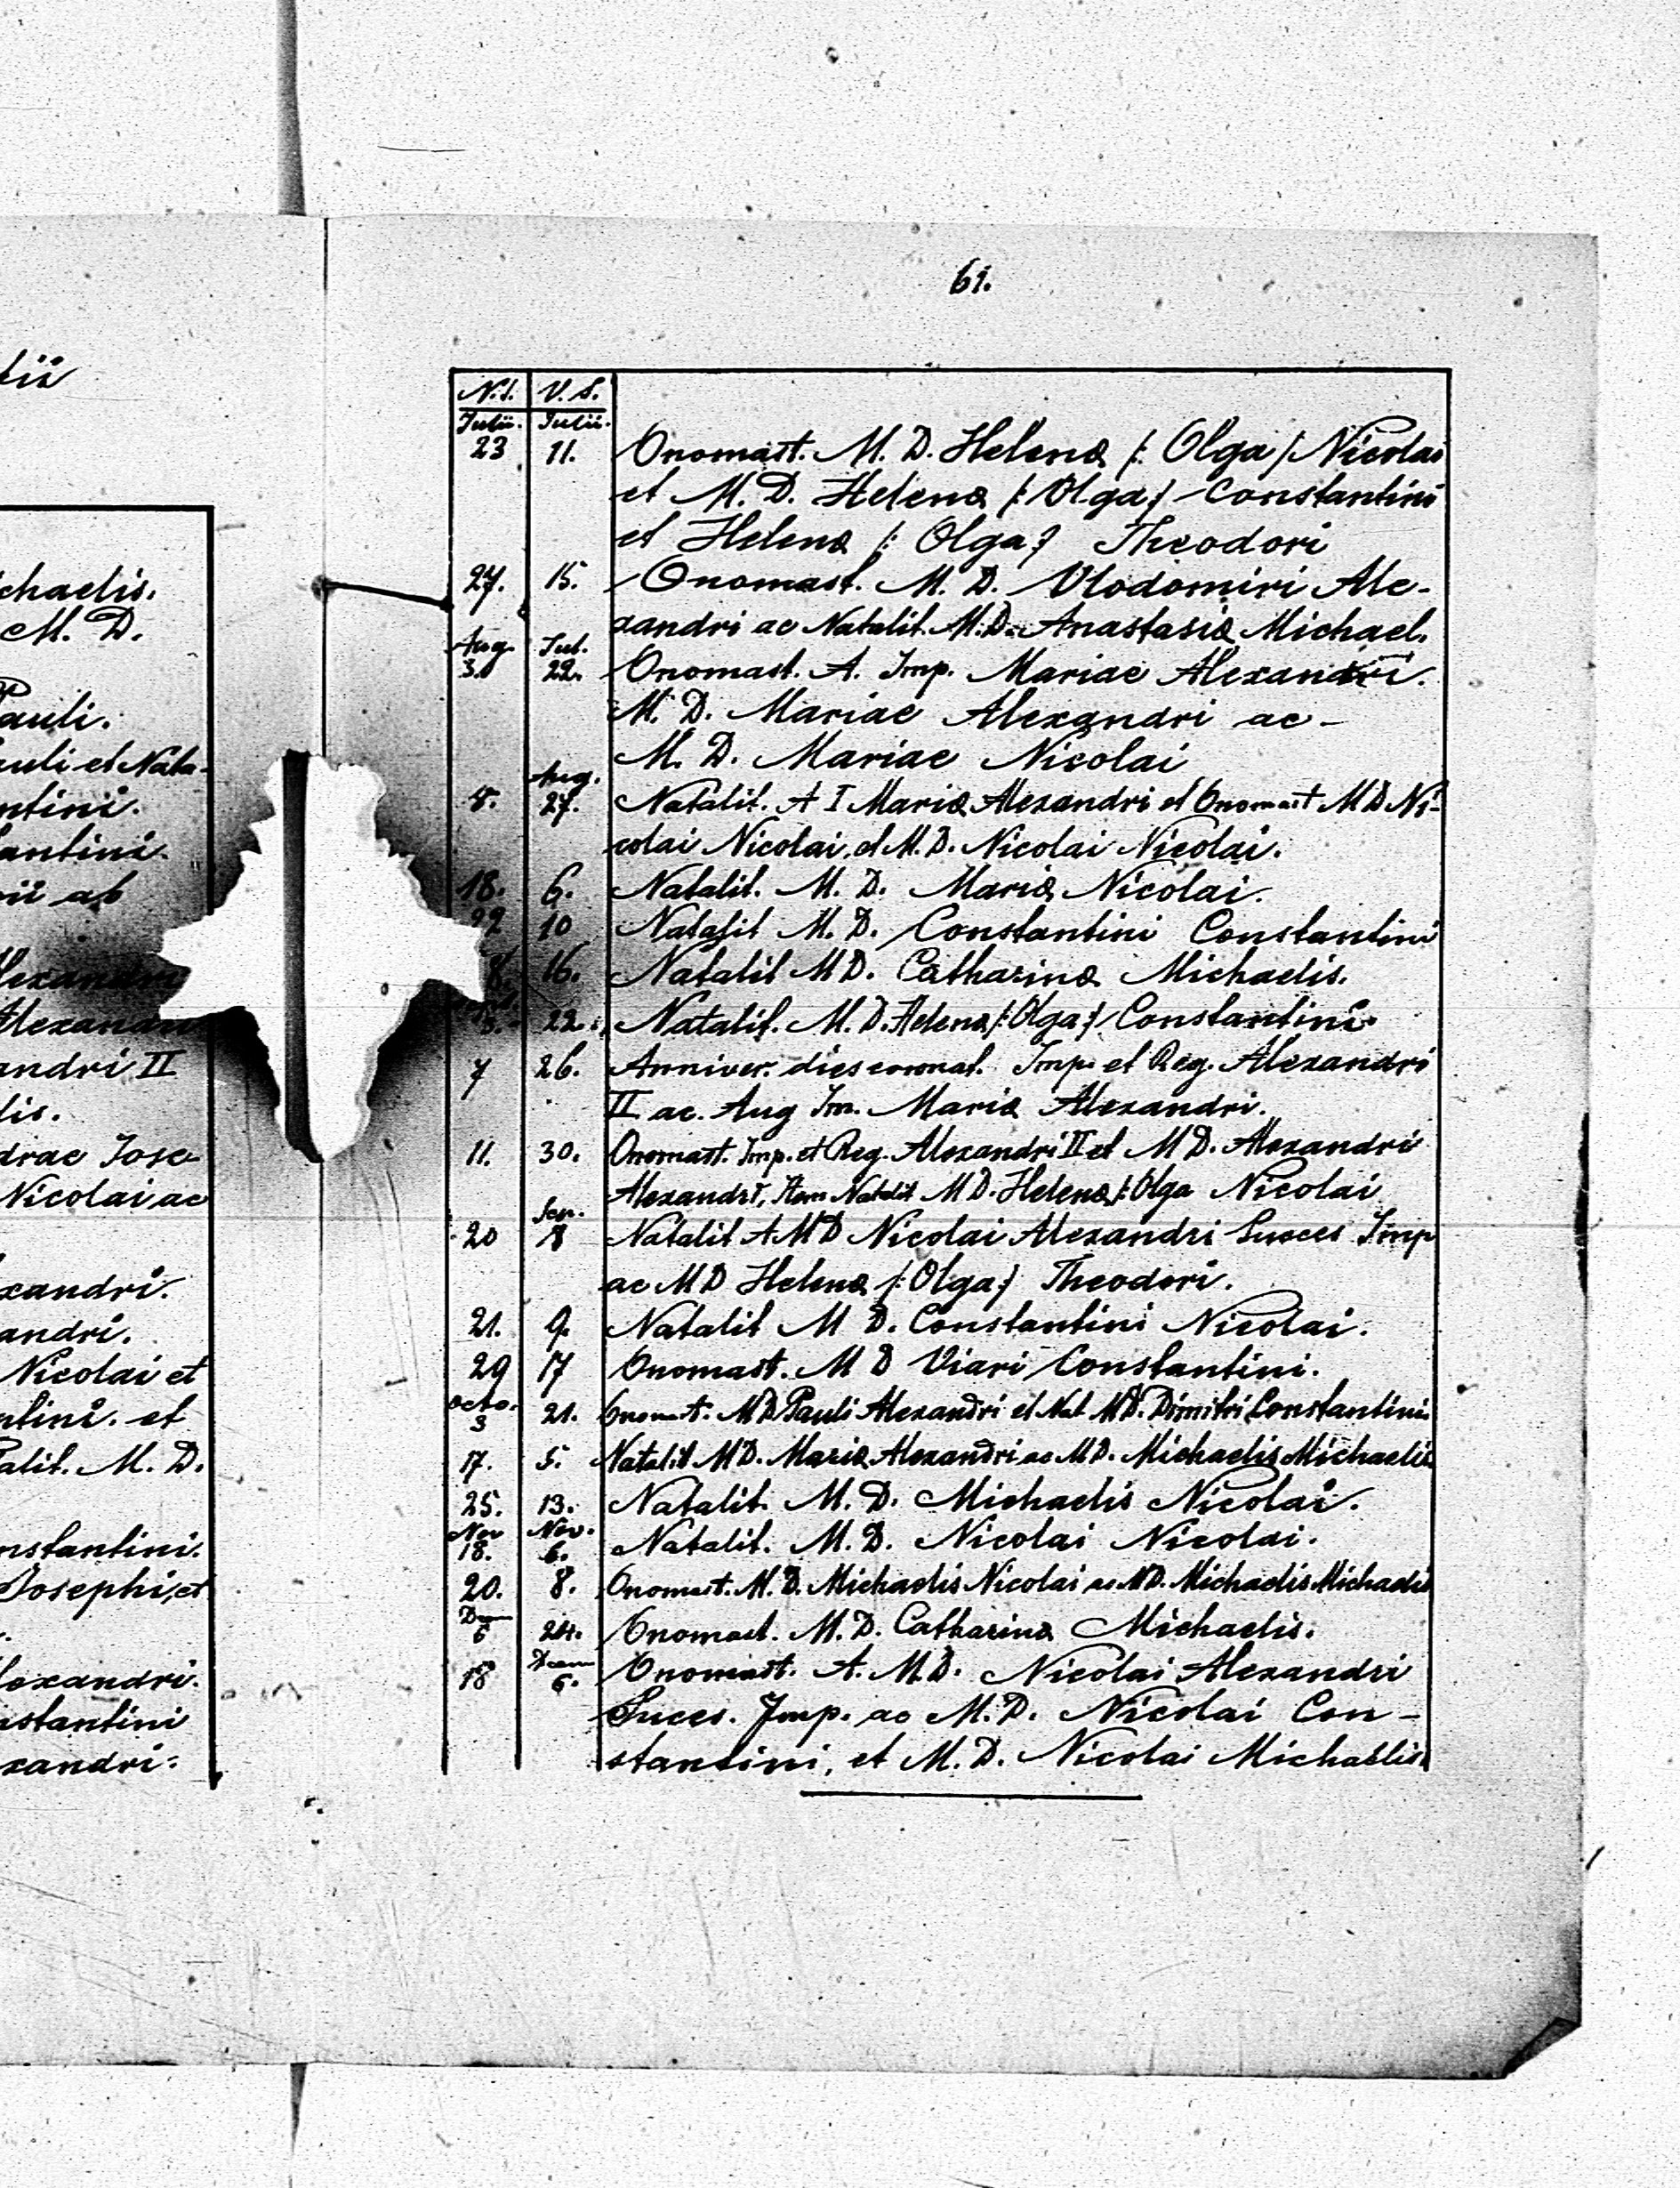 tii
chaelis.
M. D.
auli.
auli et Nata-
ntini.
antini.
ii ab
lexandri
Alexandri
andri II
lis.
drae Jose
Nicolai ac
xandri.
andri.
Nicolai et
ntini. et
alit. M. D.
nstantini.
Josephi, et
lexandri.
nstantini
xandri.
61.
N. S. V. S.
Julii. Julii.
23 11. Onomast. M. D. Helenæ /: Olga / Nicolai
et M. D. Helenæ /: Olga :/ Constantini
et Helenæ /: Olga :/ Theodori
27. 15. Onomast. M. D. Vlodomiri Ale-
xandri ac Natalit. M. D. Anastasiæ Michael.
Aug. Jul.
3. 22. Onomast. A. Imp. Mariae Alexandri.
M. D. Mariae Alexandri ac
M. D. Mariae Nicolai
Aug.
8. 27. Natalit. A I Mariæ Alexandri et Onomast M D Ni-
colai Nicolai, et M. D. Nicolai Nicolai.
18. 6. Natalit. M. D. Mariæ Nicolai.
22 10 Natalit M. D. Constantini Constantini
8. 16. Natalit M D. Catharinæ Michaelis.
3. 22. Natalit. M. D. Helenæ /: Olga :/ Constantini
7 26. Anniver. dies coronat. Imp. et Reg. Alexandri
II ac. Aug Im. Mariæ Alexandri.
11. 30. Onomast. Imp. et Reg. Alexandri II et M D. Alexandri
Alexandri, Item Natalit M D. Helenæ /: Olga Nicolai
Sep.
20 8 Natalit A M D Nicolai Alexandri Succes Imp
ac M D Helenæ /: Olga :/ Theodori.
21. 9. Natalit M D. Constantini Nicolai.
29 17 Onomast. M D Viari Constantini.
Octo.
3 21. Onomast. M D Pauli Alexandri et Nat M D. Dimitri Constantini
17. 5. Natalit M D. Mariæ Alexandri ac M D. Michaelis Michaelis
25. 13. Natalit. M. D. Michaelis Nicolai.
Nov Nov.
18. 6. Natalit. M. D. Nicolai Nicolai.
20. 8. Onomast. M. D. Michaelis Nicolai ac M D. Michaelis Michaelis
6 24. Onomast. M. D. Catharinæ Michaelis.
18 6. Onomast. A. M. D. Nicolai Alexandri
Succes. Imp. ac M. D. Nicolai Con-
stantini, et M. D. Nicolai Michaelis